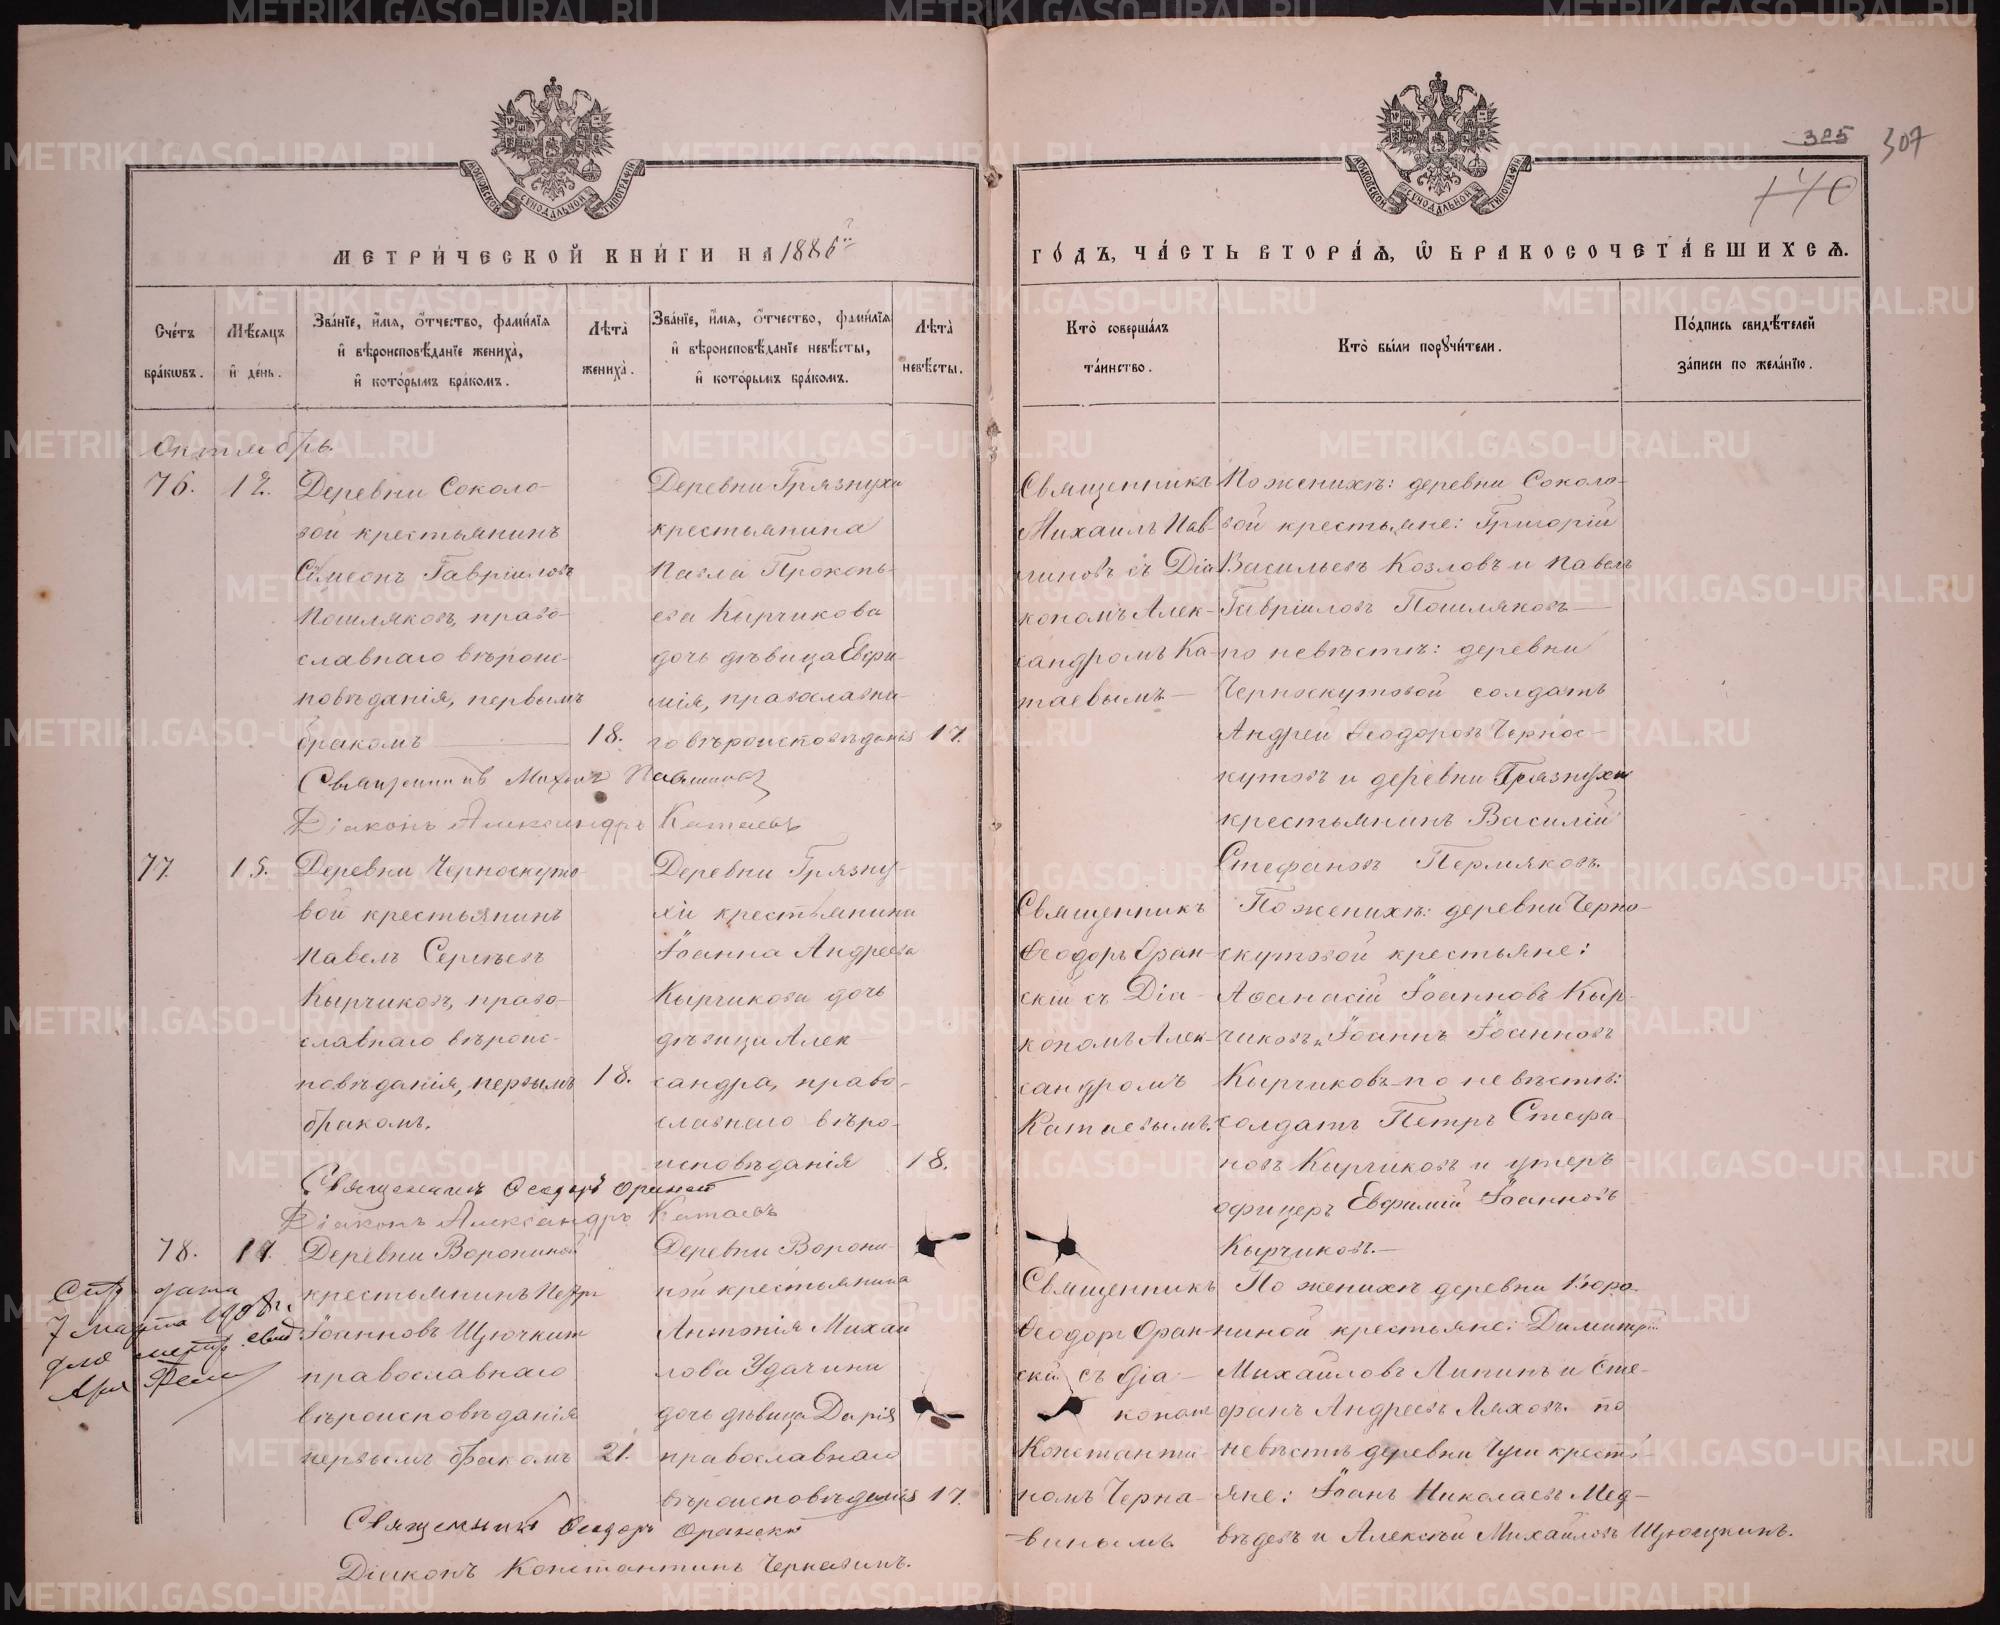 325 307
140
МОСКОВСКОЙ СѴНОДАЛЬНОЙ ТИПОГРАФІИ
МОСКОВСКОЙ СѴНОДАЛЬНОЙ ТИПОГРАФІИ
МЕТРИ́ЧЕСКОЙ КНИ́ГИ НА 1886й
ГО́ДЪ, ЧА́СТЬ ВТОРА́Ѧ, Ѡ БРАКОСОЧЕТА́ВШИХСѦ.
Сче́тъ бра́кѡвъ.
Мѣ́сяцъ и де́нь.
Зва́нїе, и́мѧ, ѻ́тчество, фами́лїѧ
и вѣроисповѣ́данїе жениха̀,
и кото́рымъ бра́комъ.
Лѣта̀ жениха̀.
Зва́нїе, и́мѧ, ѻ́тчество, фами́лїѧ
и вѣроисповѣ́данїе невѣ́сты,
и кото́рымъ бра́комъ.
Лѣта̀ невѣ́сты.
Кто̀ соверша́лъ
та́инство.
Кто̀ бы́ли порꙋчи́тели.
По́дпись свидѣ́телей
за́писи по жела́нїю.
Октябрь.
76. 12.
Деревни Соколо-
вой крестьянинъ
Симеонъ Гавріиловъ
Пошляковъ, право-
славнаго вѣроис-
повѣданія, первымъ
бракомъ 18.
Деревни Грязнухи
крестьянина
Павла Прокопь-
ева Кырчикова
дочь дѣвица Евфи-
мія, православна-
го вѣроисповѣданія 17.
Священникъ
Михаилъ Пав-
линовъ съ Діа
кономъ Алек-
сандромъ Ка-
таевымъ—
По женихѣ: деревни Соколо-
вой крестьяне: Григорій
Васильевъ Козловъ и Павелъ
Гавріиловъ Пошляковъ—
по невѣстѣ: деревни
Черноскутовой солдатъ
Андрей Ѳеодоровъ Чернос-
кутовъ и деревни Грязнухи
крестьянинъ Василій
Стефановъ Пермяковъ.
Священникъ Михаилъ Павлиновъ
Діаконъ Александръ Катаевъ
77. 15.
Деревни Черноскуто-
вой крестьянинъ
Павелъ Сергѣевъ
Кырчиковъ, право-
славнаго вѣроис-
повѣданія, первымъ 18.
бракомъ.
Деревни Грязну-
хи крестьянина
Іоанна Андреева
Кырчикова дочь
дѣвица Алек-
сандра, право-
славнаго вѣро-
исповѣданія 18.
Священникъ
Ѳеодоръ Оран-
скій съ Діа-
кономъ Алек-
сандромъ
Катаевымъ.
По женихѣ: деревни Черно-
скутовой крестьяне:
Аѳанасій Іоанновъ Кыр-
чиковъ и Іоаннъ Іоанновъ
Кырчиковъ—по невѣстѣ:
солдатъ Петръ Стефа-
новъ Кырчиковъ и унтеръ
офицеръ Евфимій Іоанновъ
Кырчиковъ.—
Священникъ Ѳеодоръ Оранскій
Діаконъ Александръ Катаевъ
78. 17.
Деревни Ворониной
крестьянинъ Петръ
Іоанновъ Щючкинъ
православнаго
вѣроисповѣданія
первымъ бракомъ 21.
Деревни Ворони-
ной крестьянина
Антонія Михаи
лова Удачина
дочь дѣвица Дарія
православнаго
вѣроисповѣданія 17.
Священникъ
Ѳеодоръ Оран-
скій съ Діа-
кономъ
Константи-
номъ Черна-
винымъ.
По женихѣ деревни Воро-
ниной крестьяне: Димитрій
Михаиловъ Липинъ и Сте-
фанъ Андреевъ Ляховъ. по
невѣстѣ деревни крестья-
яне: Іоанъ Николаевъ Мед-
вѣдевъ и Алексѣй Михайловъ Щючкинъ.
7 марта 1908 г.
для метр. свид.
Священникъ Ѳеодоръ Оранскій
Діаконъ Константинъ Чернавинъ.
METRIKI.GASO-URAL.RU